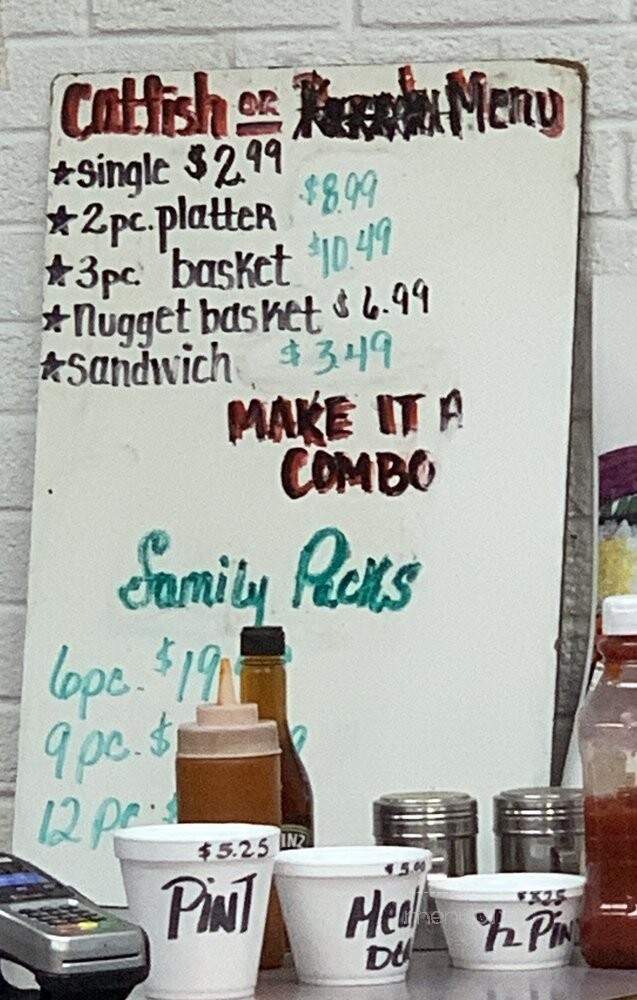 Catfish OR Menu
★single $2.99
★2pc. platter $8.99
★3pc. basket $10.49
★nugget basket $6.99
★sandwich $3.49
MAKE IT A
COMBO
Family Packs
6pc. $19
9pc. $
12pc. $
INZ
$5.25
PINT
Meal
1/2 PIN